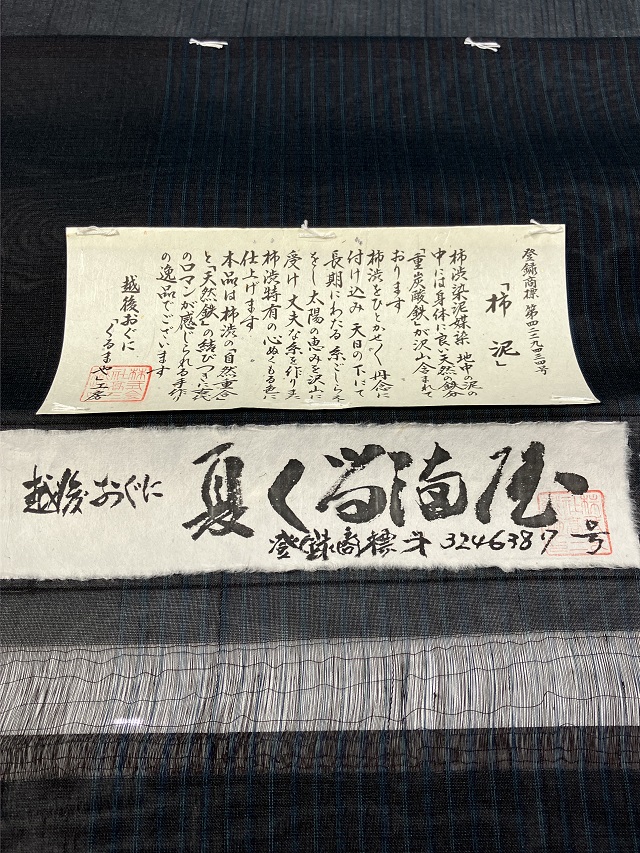 登録商標 第四二二九三四号
「柿泥」
柿渋染泥媒染 地中の泥の
中には身体に良い天然の鉄分
「重炭酸鉄」が沢山含まれて
おります
柿渋をひとかせづゝ丹念に
付け込み 天日の下にて
長期にわたる 糸ごしらえ
をし 太陽の恵みを沢山に
受け 丈夫な糸を作りまた
柿渋特有の心ぬくもる色に
仕上げます
本品は柿渋の「自然重合」
と「天然鉄」の結びつきに悠久
のロマンが感じられる手作り
の逸品でございます
越後おぐに
ぐるまや工房
越後おぐに
夏く
登録商標 第3246387号